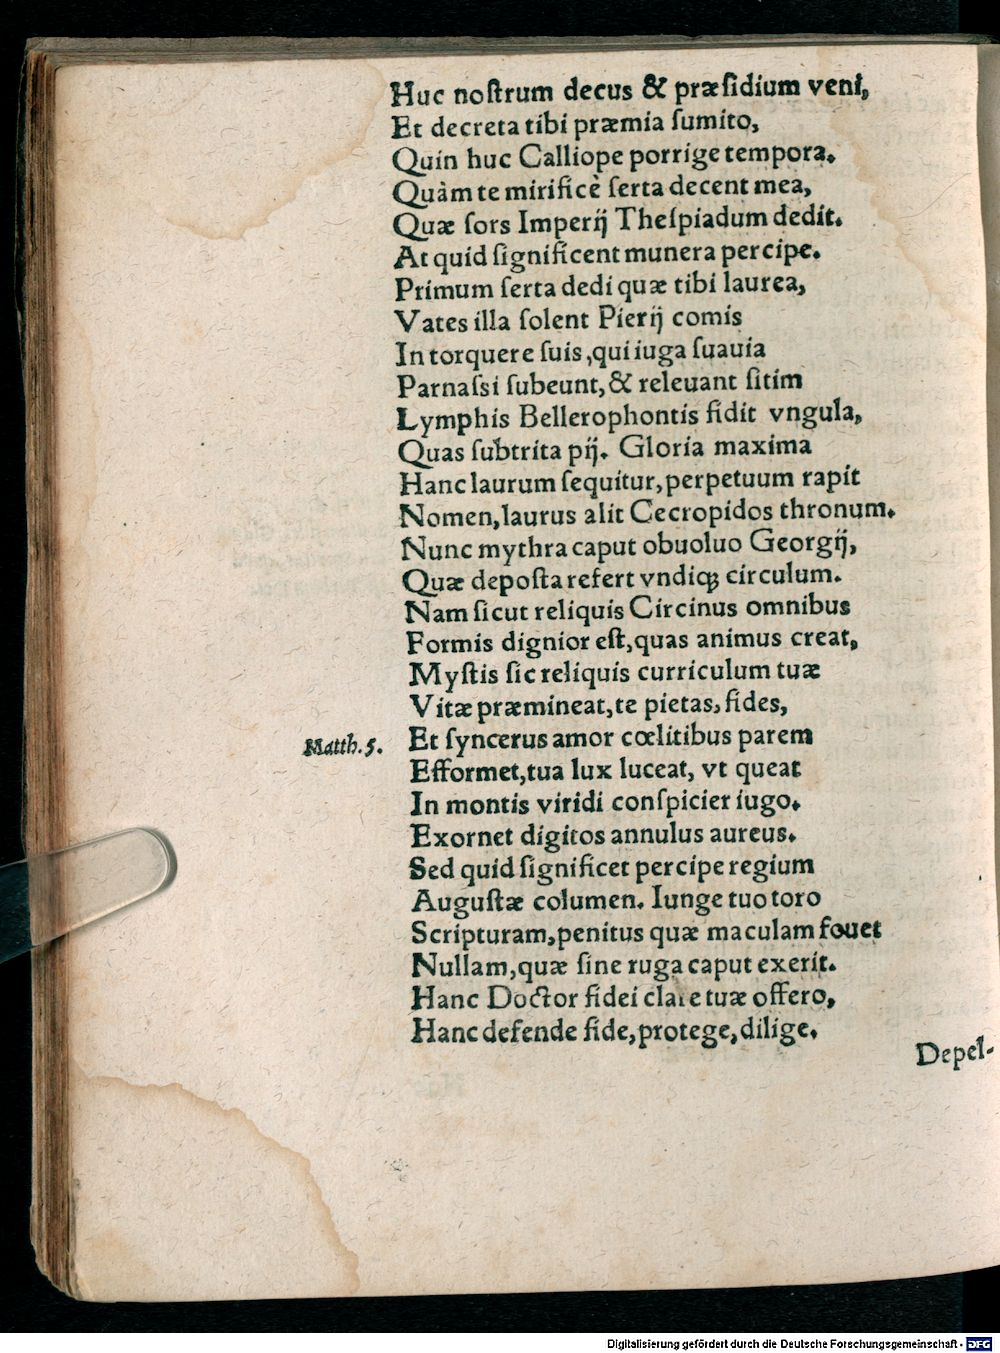 Huc noſtrum decus & præſidium veni,
Et decreta tibi præmia ſumito,
Quin huc Calliope porrige tempora.
Quàm te mirificè ſerta decent mea,
Quæ ſors Imperij Theſpiadum dedit.
At quid ſignificent munera percipe.
Primum ſerta dedi quæ tibi laurea,
Vates illa ſolent Pierij comis
In torquere ſuis, qui iuga ſuauia
Parnaſsi ſubeunt, & releuant ſitim
Lymphis Bellerophontis fidit vngula,
Quas ſubtrita pij. Gloria maxima
Hanc laurum ſequitur, perpetuum rapit
Nomen, laurus alit Cecropidos thronum.
Nunc mythra caput obuoluo Georgij,
Quæ depoſta refert vndiqꝫ circulum.
Nam ſicut reliquis Circinus omnibus
Formis dignior eſt, quas animus creat,
Myſtis ſic reliquis curriculum tuæ
Vitæ præmineat, te pietas, fides,
Matth. 5. Et ſyncerus amor cœlitibus parem
Efformet, tua lux luceat, vt queat
In montis viridi conſpicier iugo.
Exornet digitos annulus aureus.
Sed quid ſignificet percipe regium
Auguſtæ columen. Iunge tuo toro
Scripturam, penitus quæ maculam fouet
Nullam, quæ ſine ruga caput exerit.
Hanc Doctor fidei clare tuæ offero,
Hanc defende fide, protege, dilige.
Depel-
Digitalisierung gefördert durch die Deutsche Forschungsgemeinschaft - DFG